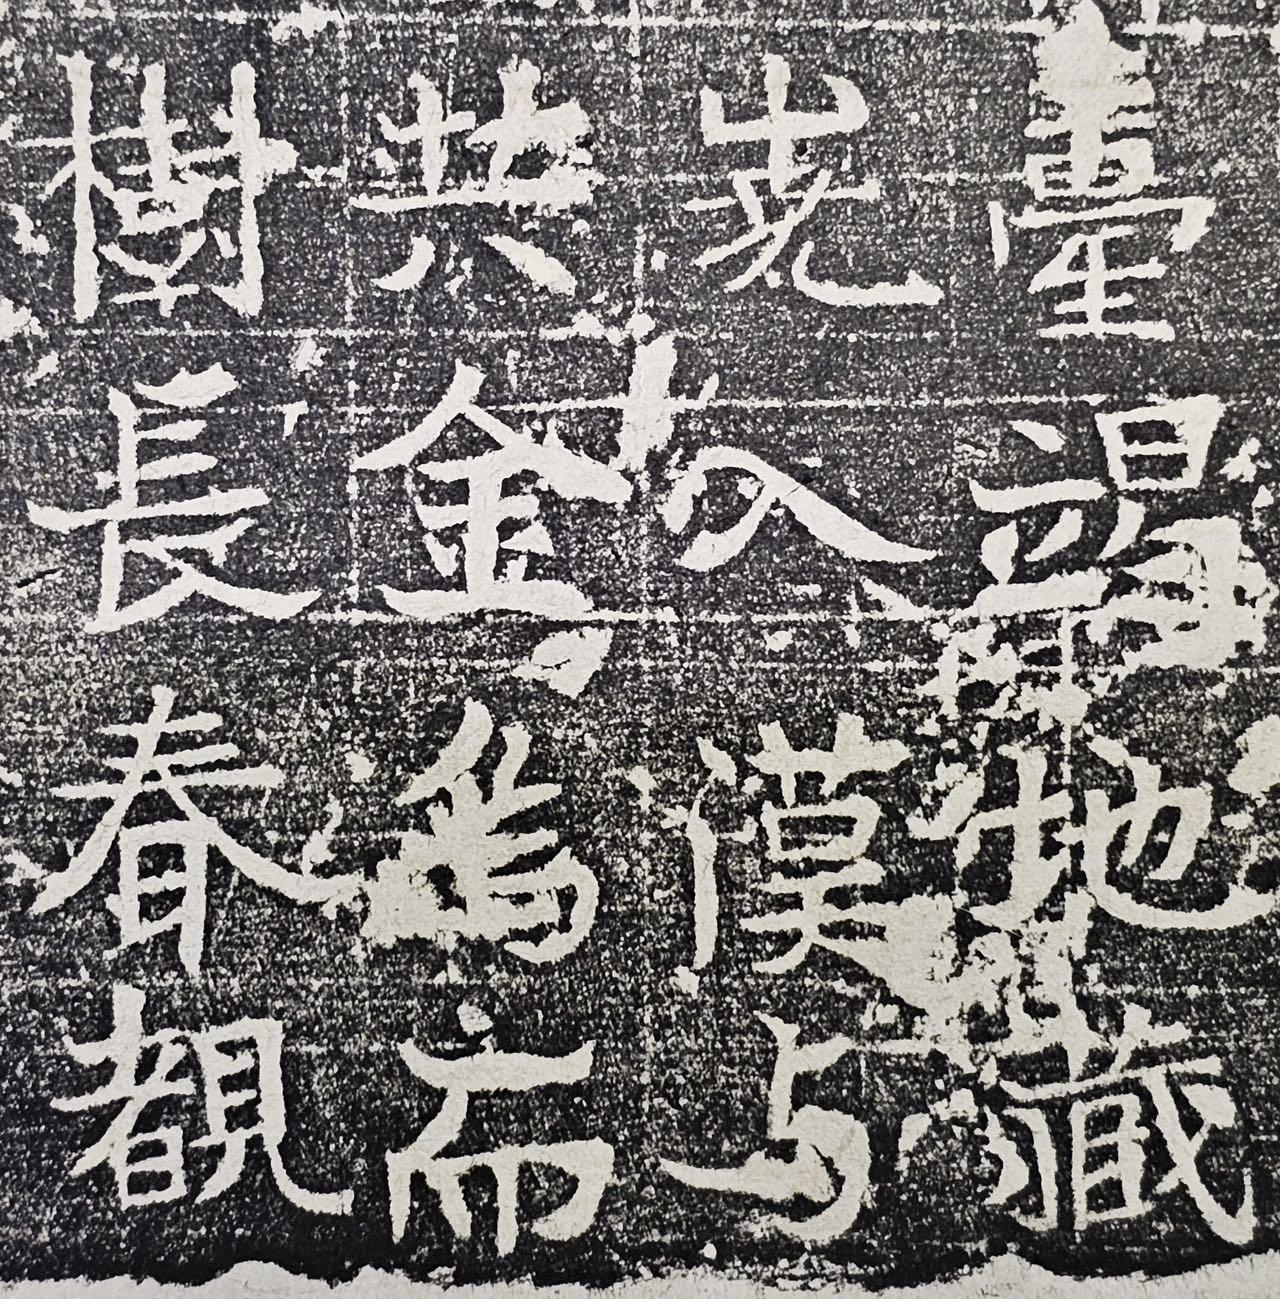 臺竭地藏
入漢与
共金為而
樹長春覩